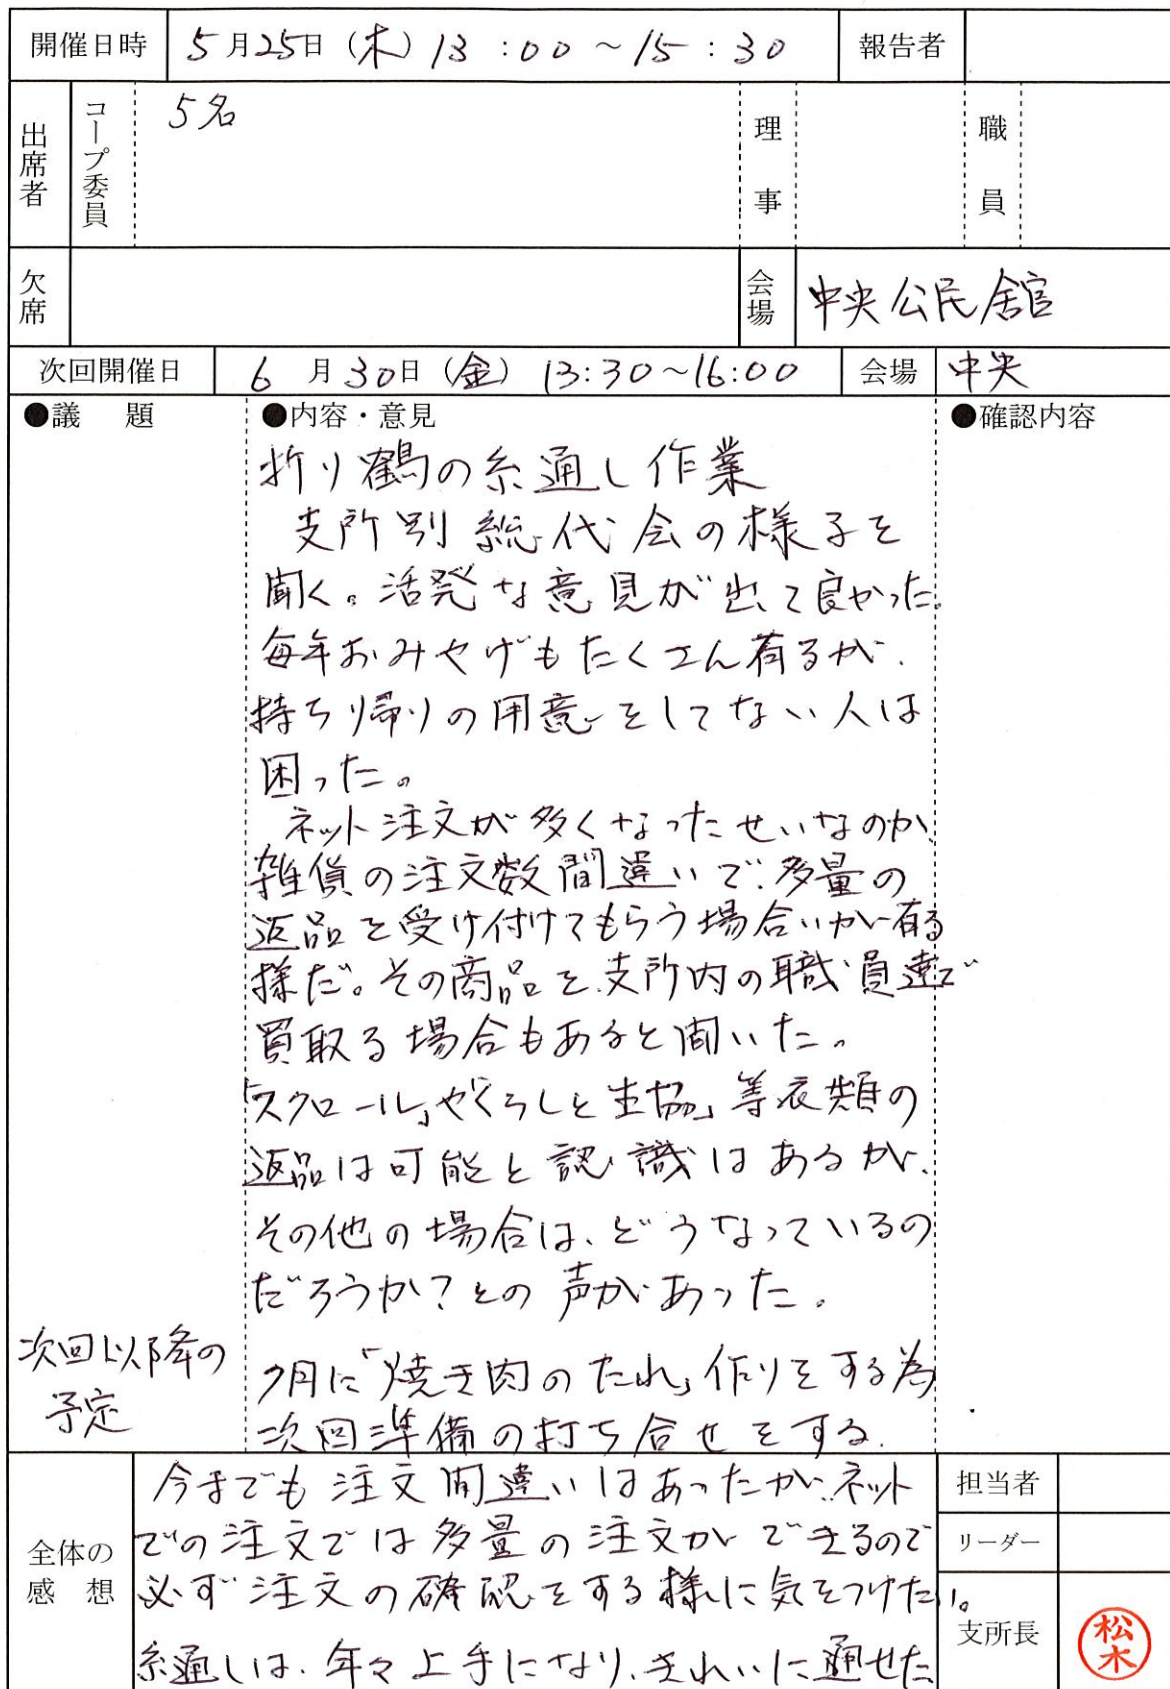 開催日時 5月25日(木)13:00~15:30 報告者
出席者 コープ委員 5名 理事 職員
欠席 会場 中央公民館
次回開催日 6月30日(金)13:30~16:00 会場 中央
●議 題 ●内容・意見 ●確認内容
折り鶴の糸通し作業
支所別総代会の様子を
聞く。活発な意見が出て良かった。
毎年おみやげもたくさん有るが、
持ち帰りの用意をしてない人は
困った。
ネット注文が多くなったせいなのか、
雑貨の注文数間違いで、多量の
返品を受け付けてもらう場合いが有る
様だ。その商品を支所内の職員達で
買取る場合もあると聞いた。
「スクロール」や「くらしと生協」等衣類の
返品は可能と認識はあるが、
その他の場合は、どうなっているの
だろうか?との声があった。
次回以降の
予定
7月に「焼き肉のたれ」作りをする為
次回準備の打ち合せをする。
全体の
感 想
今までも注文間違いはあったが、ネット
での注文では多量の注文ができるので
必ず注文の確認をする様に気をつけたい。
糸通しは、年々上手になり、きれいに通せた
担当者
リーダー
支所長 松木